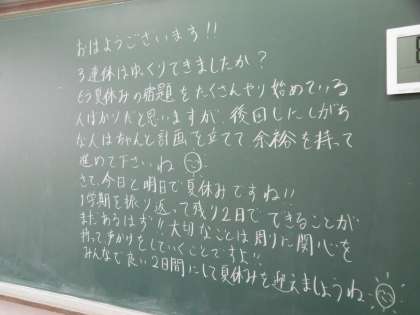 おはようございます!!
3連休はゆっくりできましたか?
もう夏休みの宿題をたくさんやり始めている
人ばかりだと思いますが、後回しにしがち
な人はちゃんと計画を立てて余裕を持って
進めて下さいね
さて、今日と明日で夏休みですね!!
1学期を振り返って残り2日でできることが
まだあるはず!!大切なことは周りに関心を
持って声かけをしていくことですよ!!
みんなで良い2日間にして夏休みを迎えましょうね